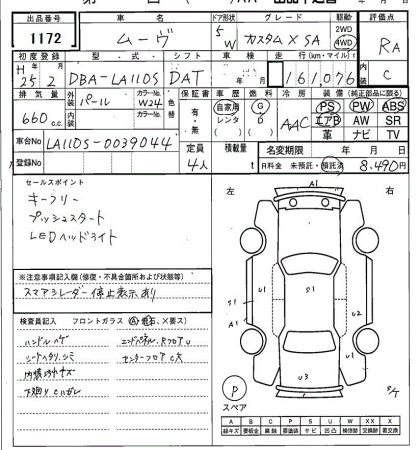 出品番号 車名 ドア形状 グレード 駆動 評価点
1172 ムーヴ 5W カスタムX SA 2WD 4WD RA
初度登録 型・式 シフト 車検 走行(km・マイル)
H25 2 DBA-LA110S DAT 年 月 161,076 内装 C
排気量 外装 カラーNo. 色替 保証書 車歴 燃料 冷房 装備(純正部品に限る)
660 c.c. パール W24 有・無 自家用 レンタ G D AAC PS PW ABS
エアB AW SR
革 ナビ TV
車台No LA110S-0039044 定員 積載量 名変期限 年 月 日
登録No 4人 t R料金 未預託・預託済 8,490円
セールスポイント
キーフリー
プッシュスタート
LEDヘッドライト
※注意事項記入欄(修復・不具合箇所および状態等)
スマアシレーダー停止表示あり
検査員記入 フロントガラス(A・飛石、X要ス)
ハンドルハゲ エンドパネル、RフロアU
シートヘタリ、シミ センターフロアC大
内張みゾキズ
下廻りCハガレ
左 右
A1
S1 U1 S1 U2
A1 U1
U3 S/T
P
スペア
A B C P S U W X XX
線キズ 要板金 腐蝕 要塗装 サビ 凹凸 補修跡 交換跡 要交換